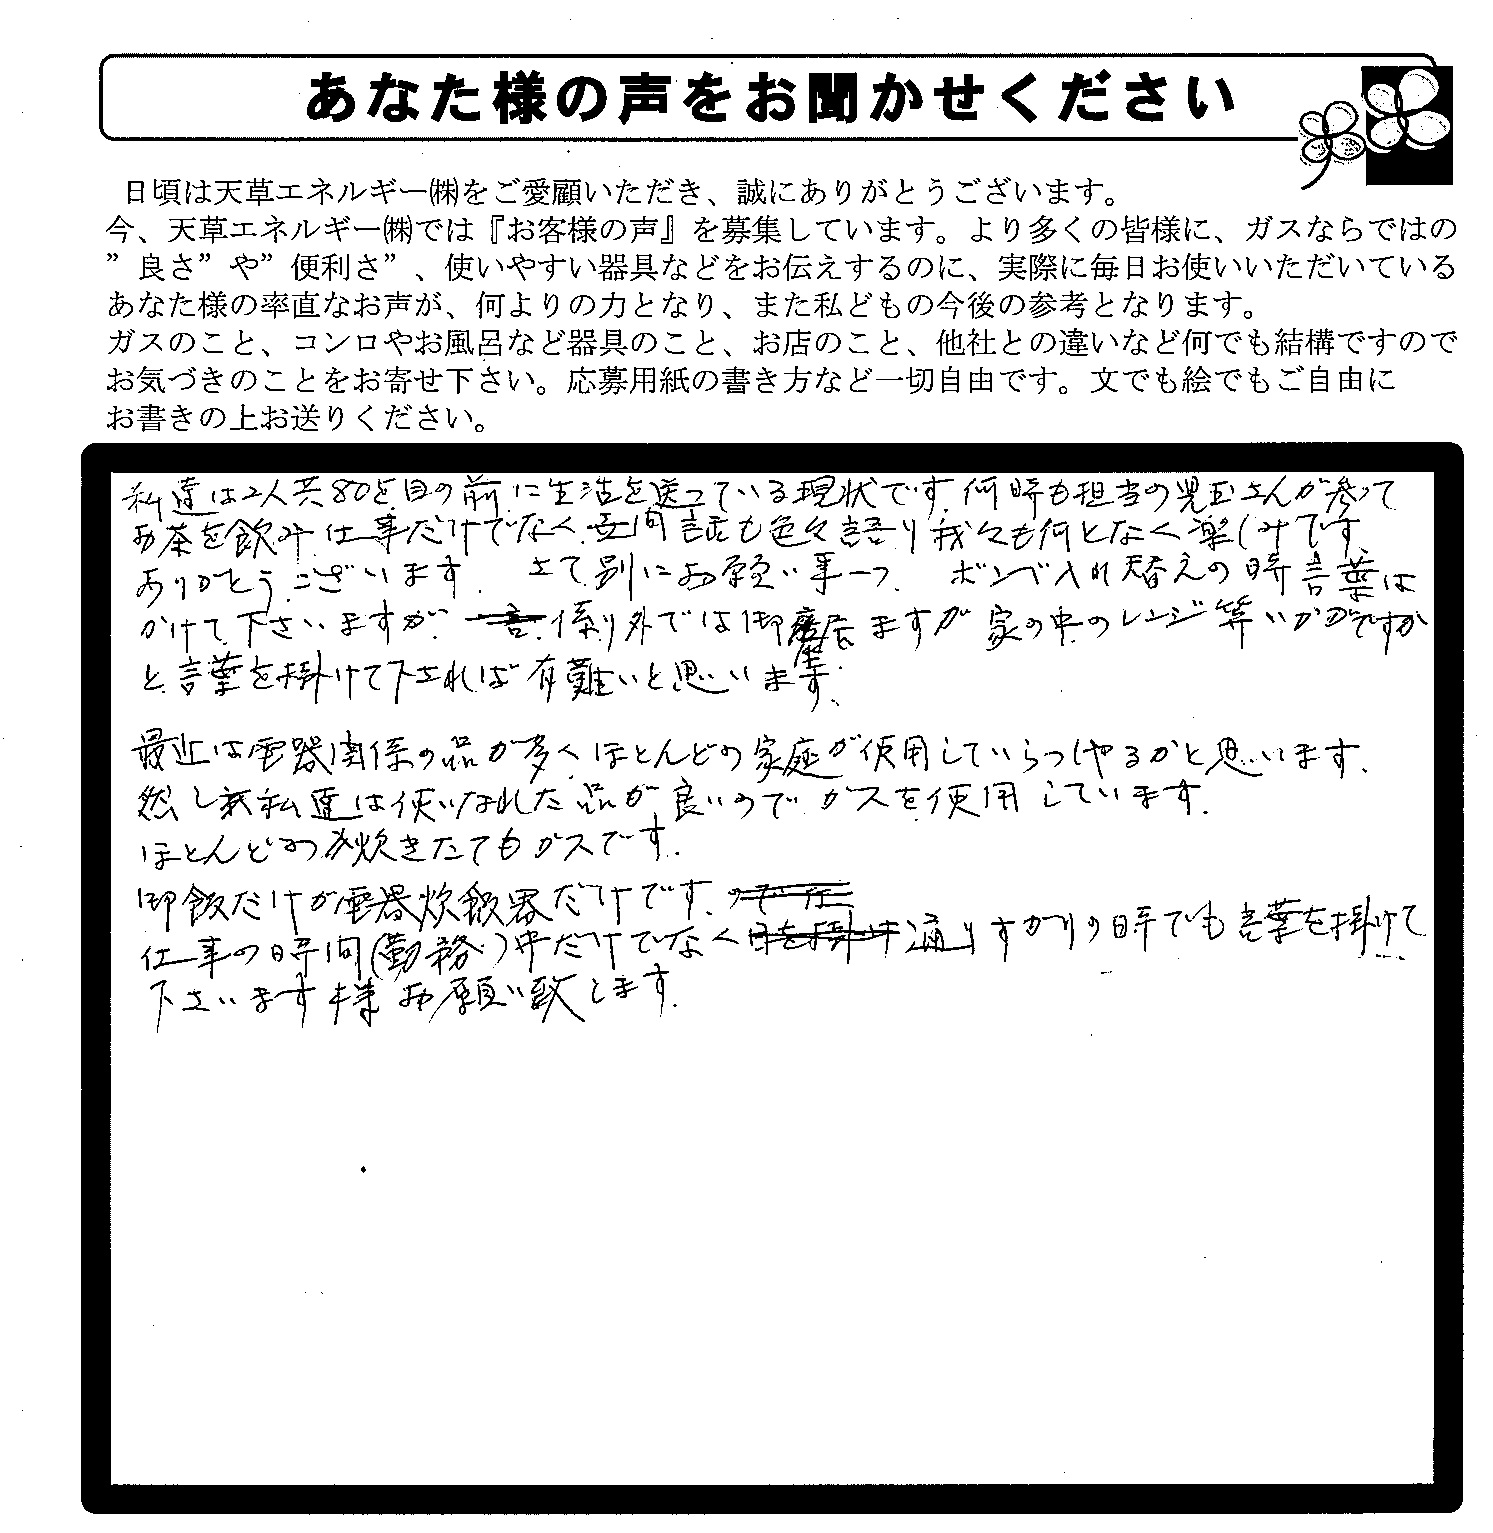 あなた様の声をお聞かせください
日頃は天草エネルギー㈱をご愛顧いただき、誠にありがとうございます。
今、天草エネルギー㈱では『お客様の声』を募集しています。より多くの皆様に、ガスならではの
”良さ”や”便利さ”、使いやすい器具などをお伝えするのに、実際に毎日お使いいただいている
あなた様の率直なお声が、何よりの力となり、また私どもの今後の参考となります。
ガスのこと、コンロやお風呂など器具のこと、お店のこと、他社との違いなど何でも結構ですので
お気づきのことをお寄せ下さい。応募用紙の書き方など一切自由です。文でも絵でもご自由に
お書きの上お送りください。
私達は2人共80を目の前に生活を送っている現状です。何時も担当の児玉さんが参って
お茶を飲み仕事だけでなく世間話も色々語り我々も何となく楽しみです
ありがとうございます。 さて別にお願い事一つ ボンベ入れ替えの時言葉は
かけて下さいますが、係り外では御座居ますが家の中のレンジ等いかがですか
と言葉を掛けて下されば有難いと思います。
最近は電器関係の品が多く、ほとんどの家庭が使用していらっしゃるかと思います。
然し私達は使いなれた品が良いのでガスを使用しています。
ほとんどの炊きたてもガスです。
御飯だけが電器炊飯器だけです。
仕事の時間(勤務)中だけでなく通りすがりの時でも言葉を掛けて
下さいます様お願い致します。